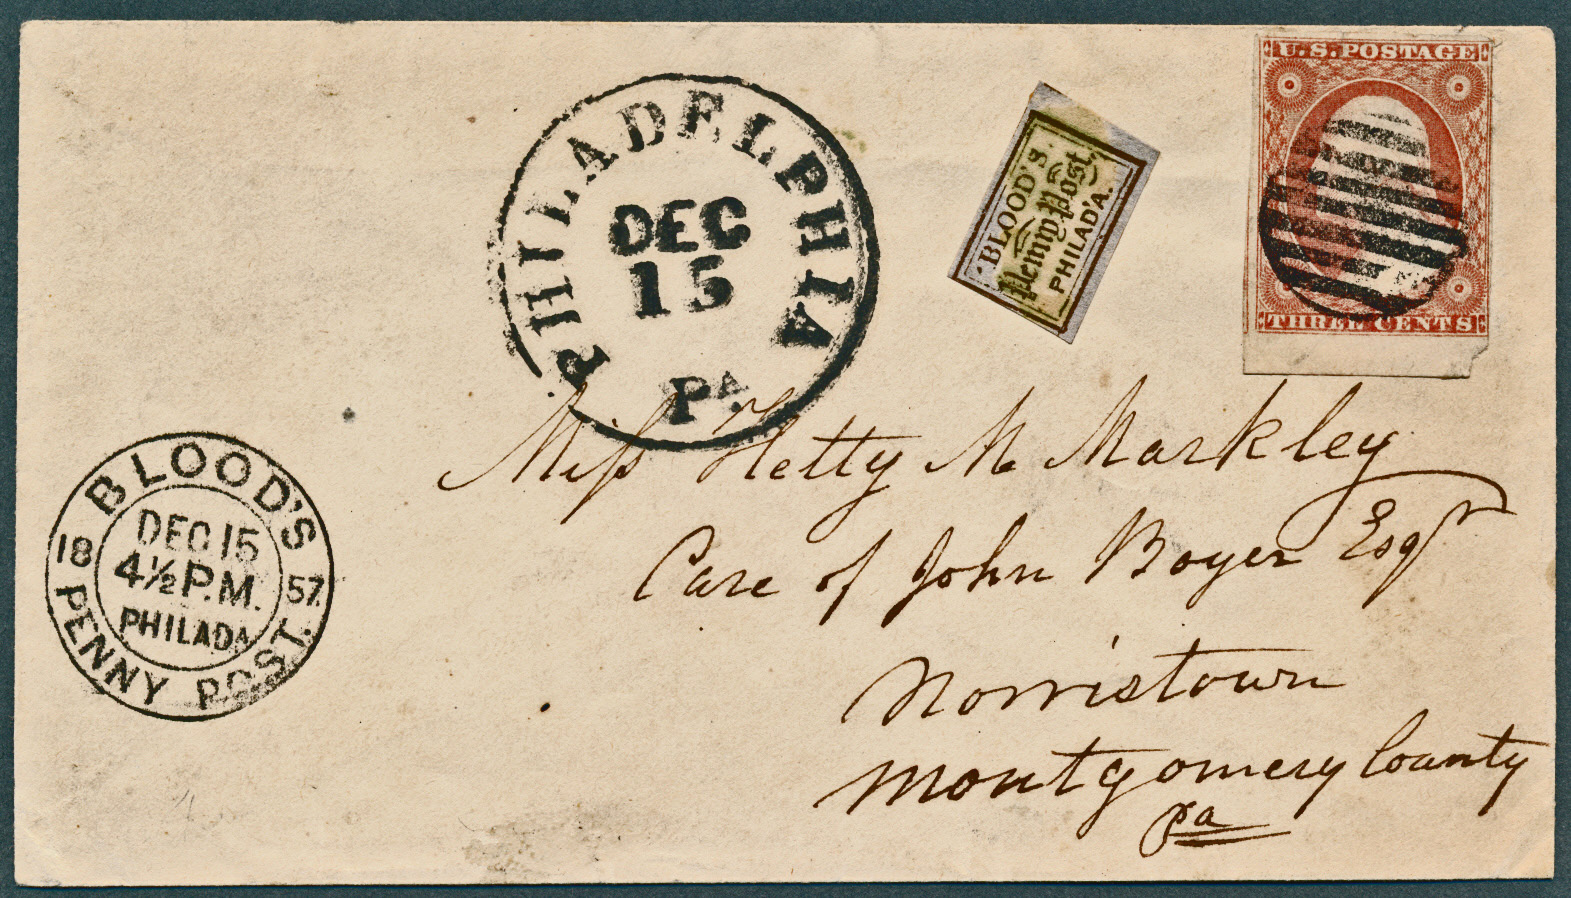 U.S. POSTAGE
THREE CENTS
PHILADELPHIA
DEC
15
PA
BLOOD'S
Penny Post,
PHILAD'A.
Miss Hetty M Markley
Care of John Boyer Esqr
Norristown
Montgomery County
Pa
BLOOD'S
18 57.
DEC 15
4½ P.M.
PHILADA
PENNY POST.